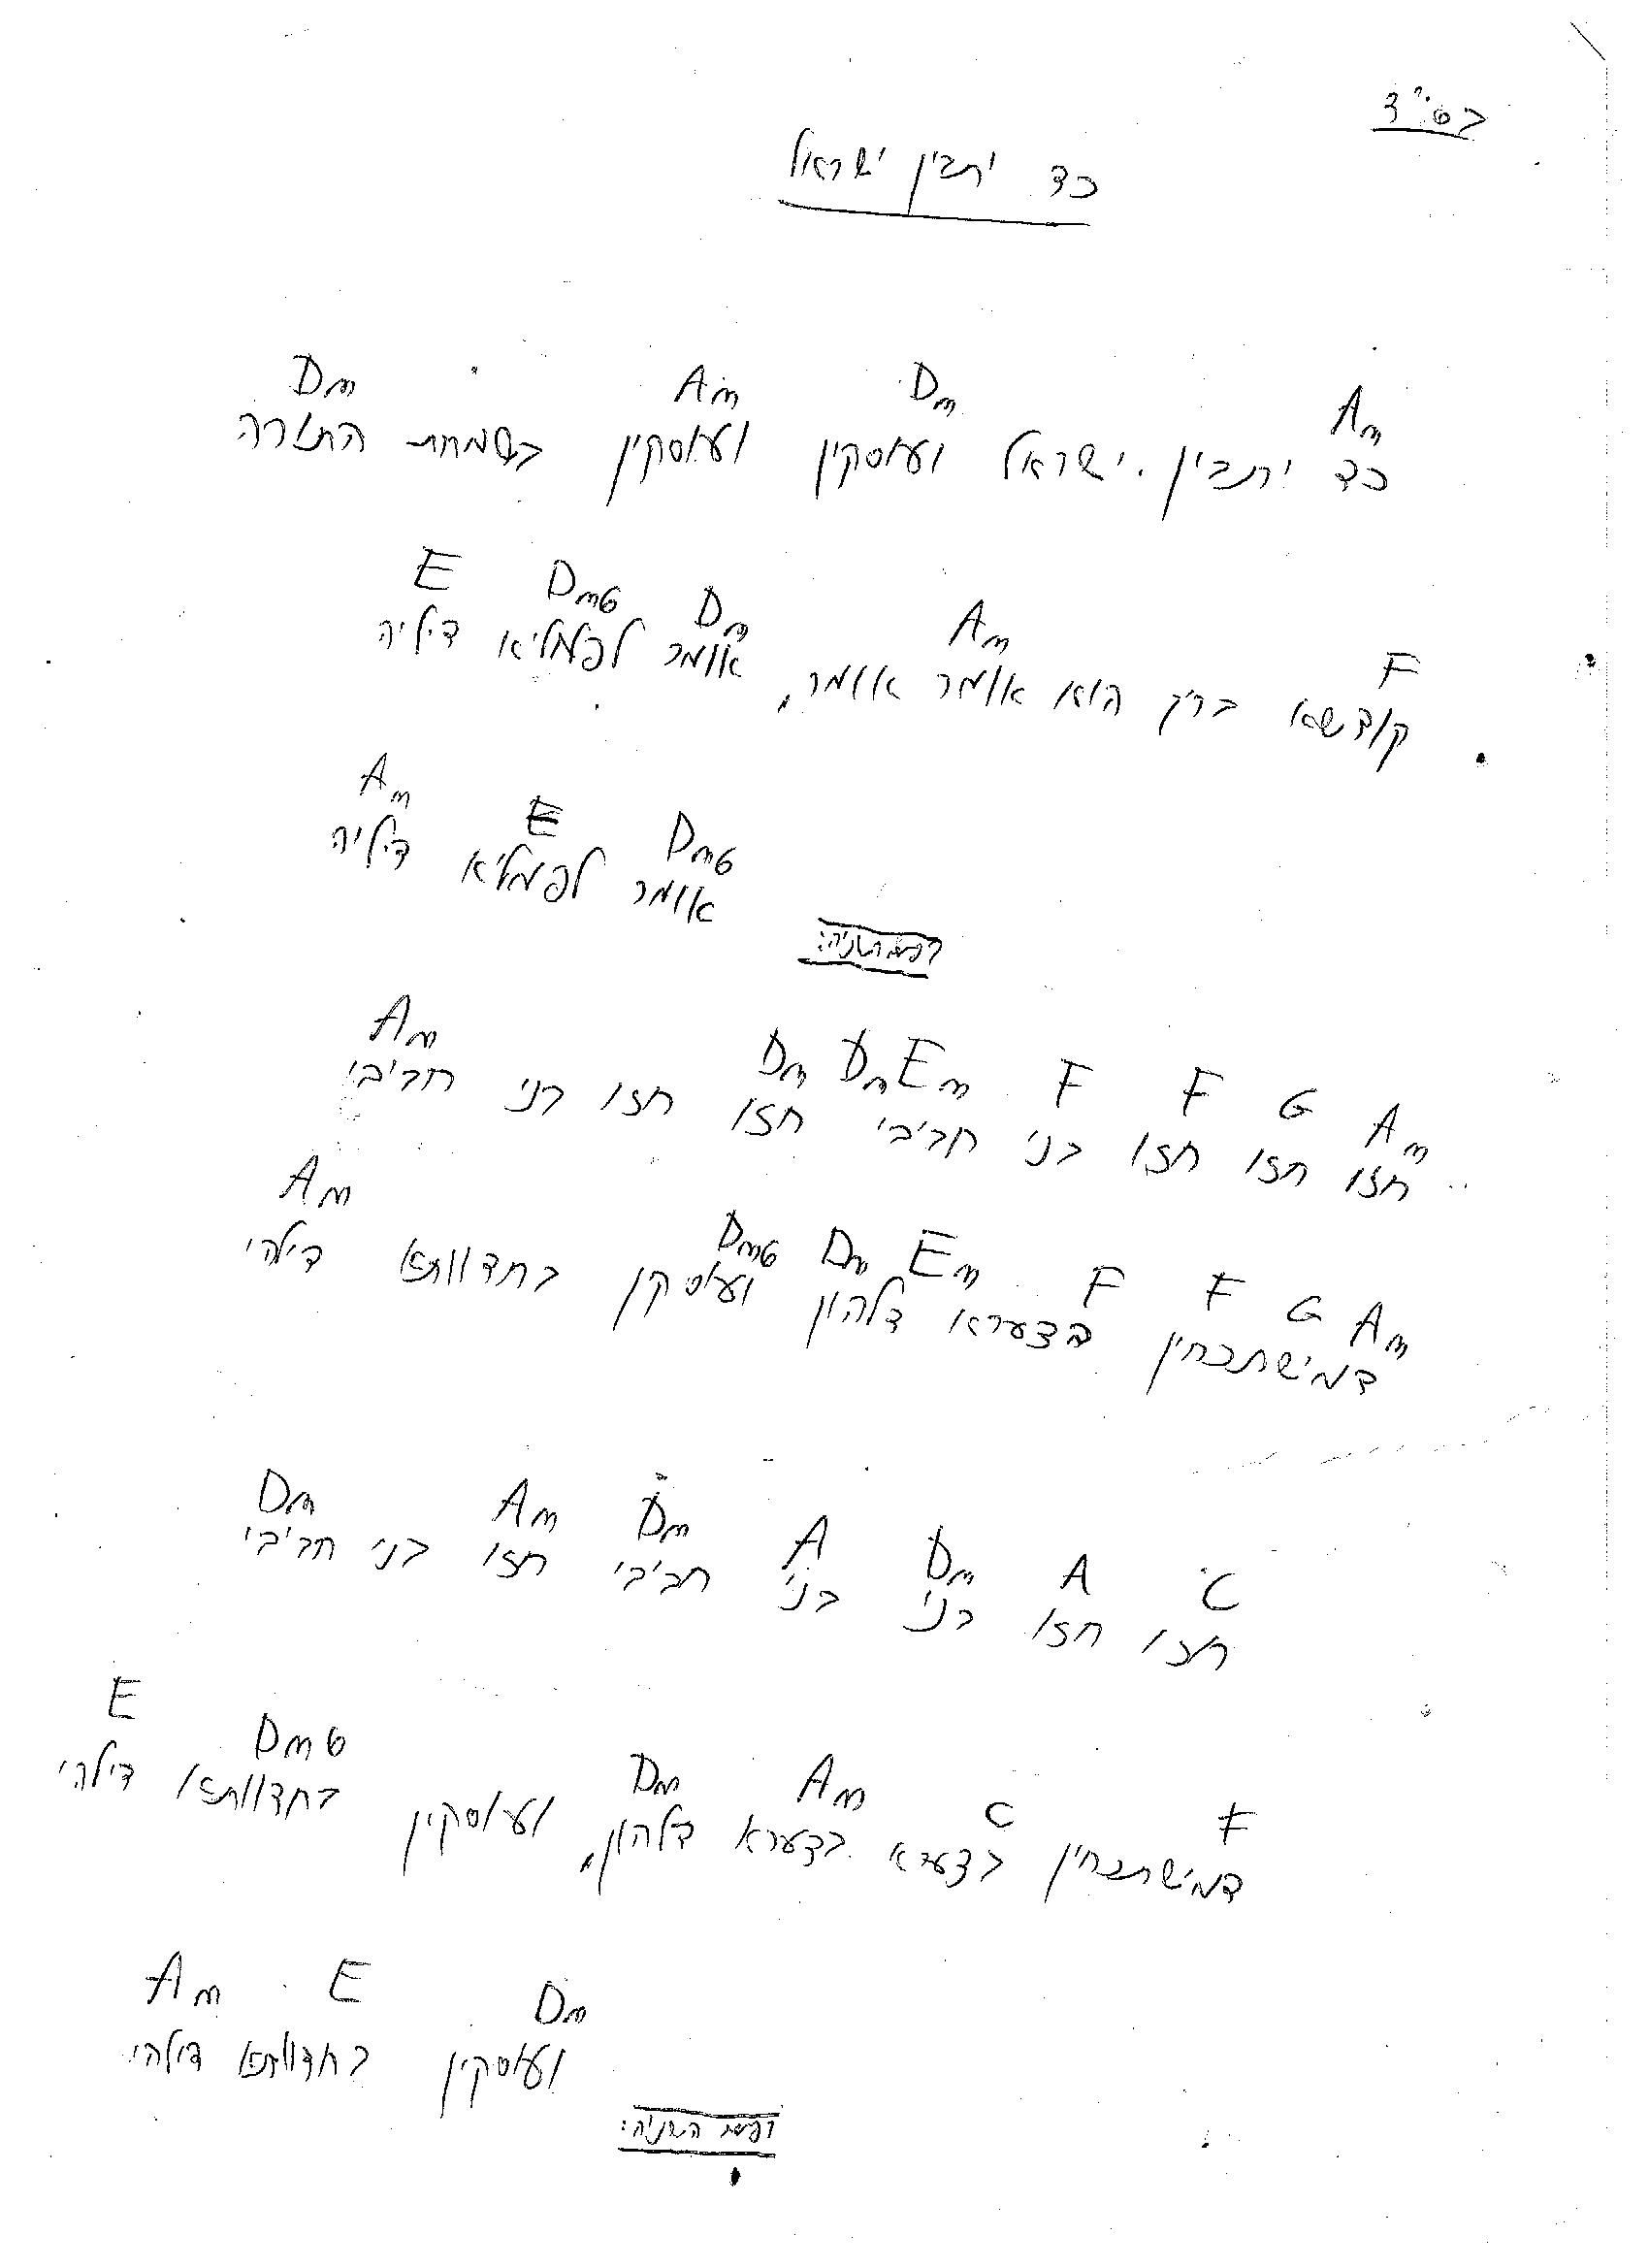 בס"ד
כד יתבין ישראל
Am Dm Am Dm
כד יתבין ישראל ועוסקין ועוסקין בשמחת התורה
F Am Dm Dm6 E
קודשא בריך הוא אומר אומר, אומר לפמליא דיליה
Dm6 E Am
אומר לפמליא דיליה
Am G F F Em Dm Dm Am
חזו חזו חזו בני חביבי חזו חזו בני חביבי
Am G F F Em Dm Dm6 Am
דמישתכחין בצערא דלהון ועוסקין בחדוותא דילהי
C A Dm A Dm Am Dm
חזו חזו בני בני חביבי חזו בני חביבי
F C Am Dm Dm6 E
דמישתכחין בצערא בצערא דלהון, ועוסקין בחדוותא דילהי
Dm E Am
ועוסקין בחדוותא דילהי